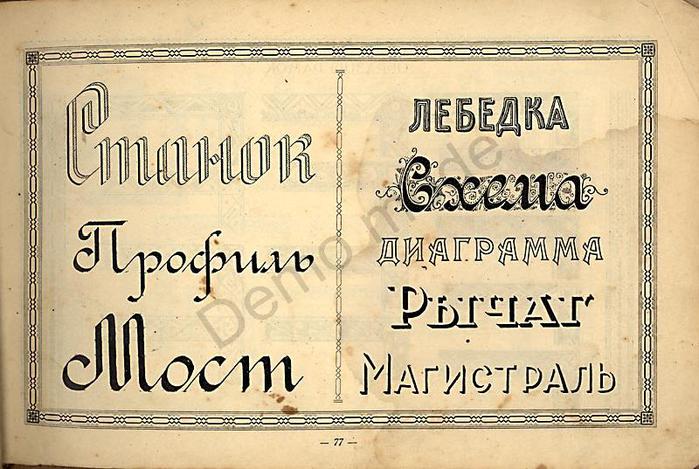 Станок
Профиль
Мост
ЛЕБЕДКА
Схема
ДИАГРАММА
РЫЧАГ
МАГИСТРАЛЬ
— 77 —
Demo mode